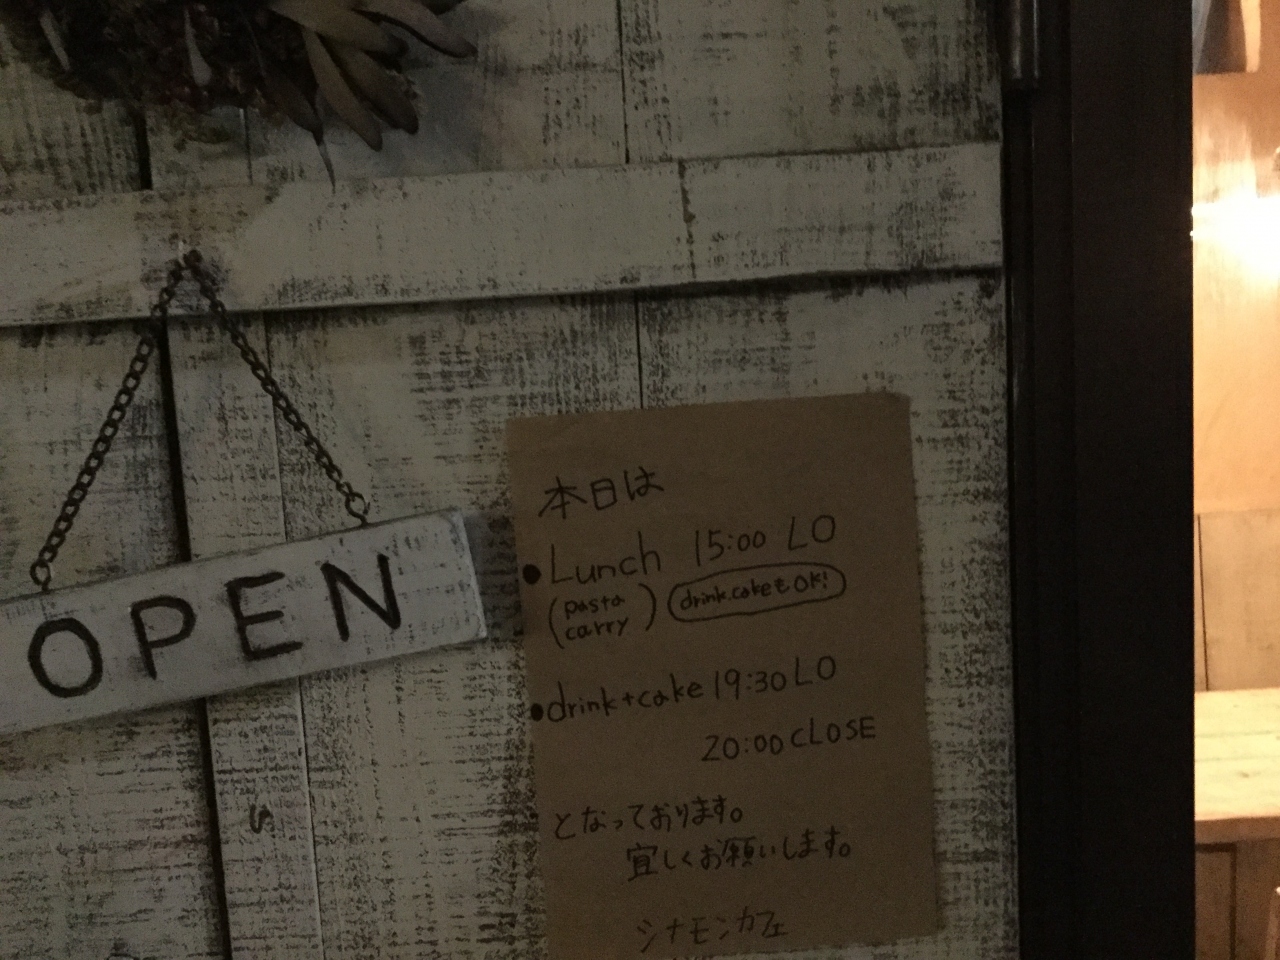 OPEN
本日は
●Lunch 15:00 LO
(pasta carry) drink.cakeもOK!
●drink+cake 19:30 LO
20:00 CLOSE
となっております。
宜しくお願いします。
シナモンカフェ